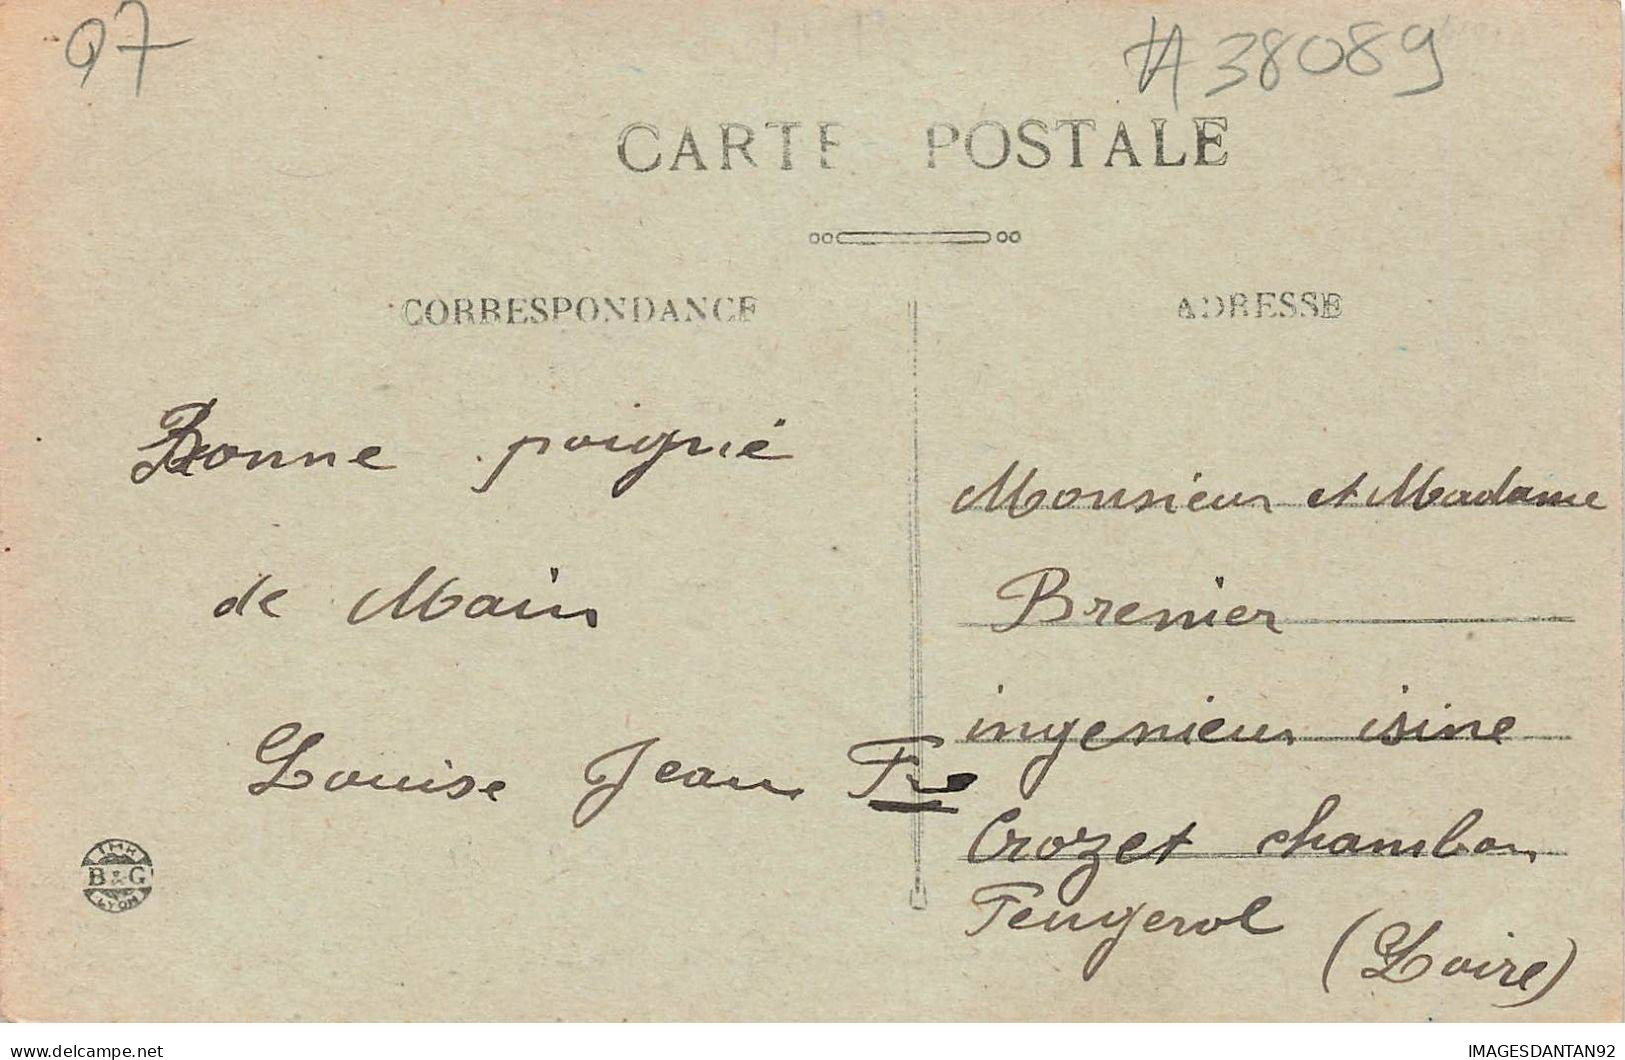 97
A38089
CARTE POSTALE
CORRESPONDANCE
ADRESSE
Bonne poignié
de Main
Louise Jean
Monsieur et Madame
Brenier
ingenieur isine
Crozet chambon
Feugerol (Loire)
IMP.
B & G
LYON
delcampe.net
IMAGESDANTAN92